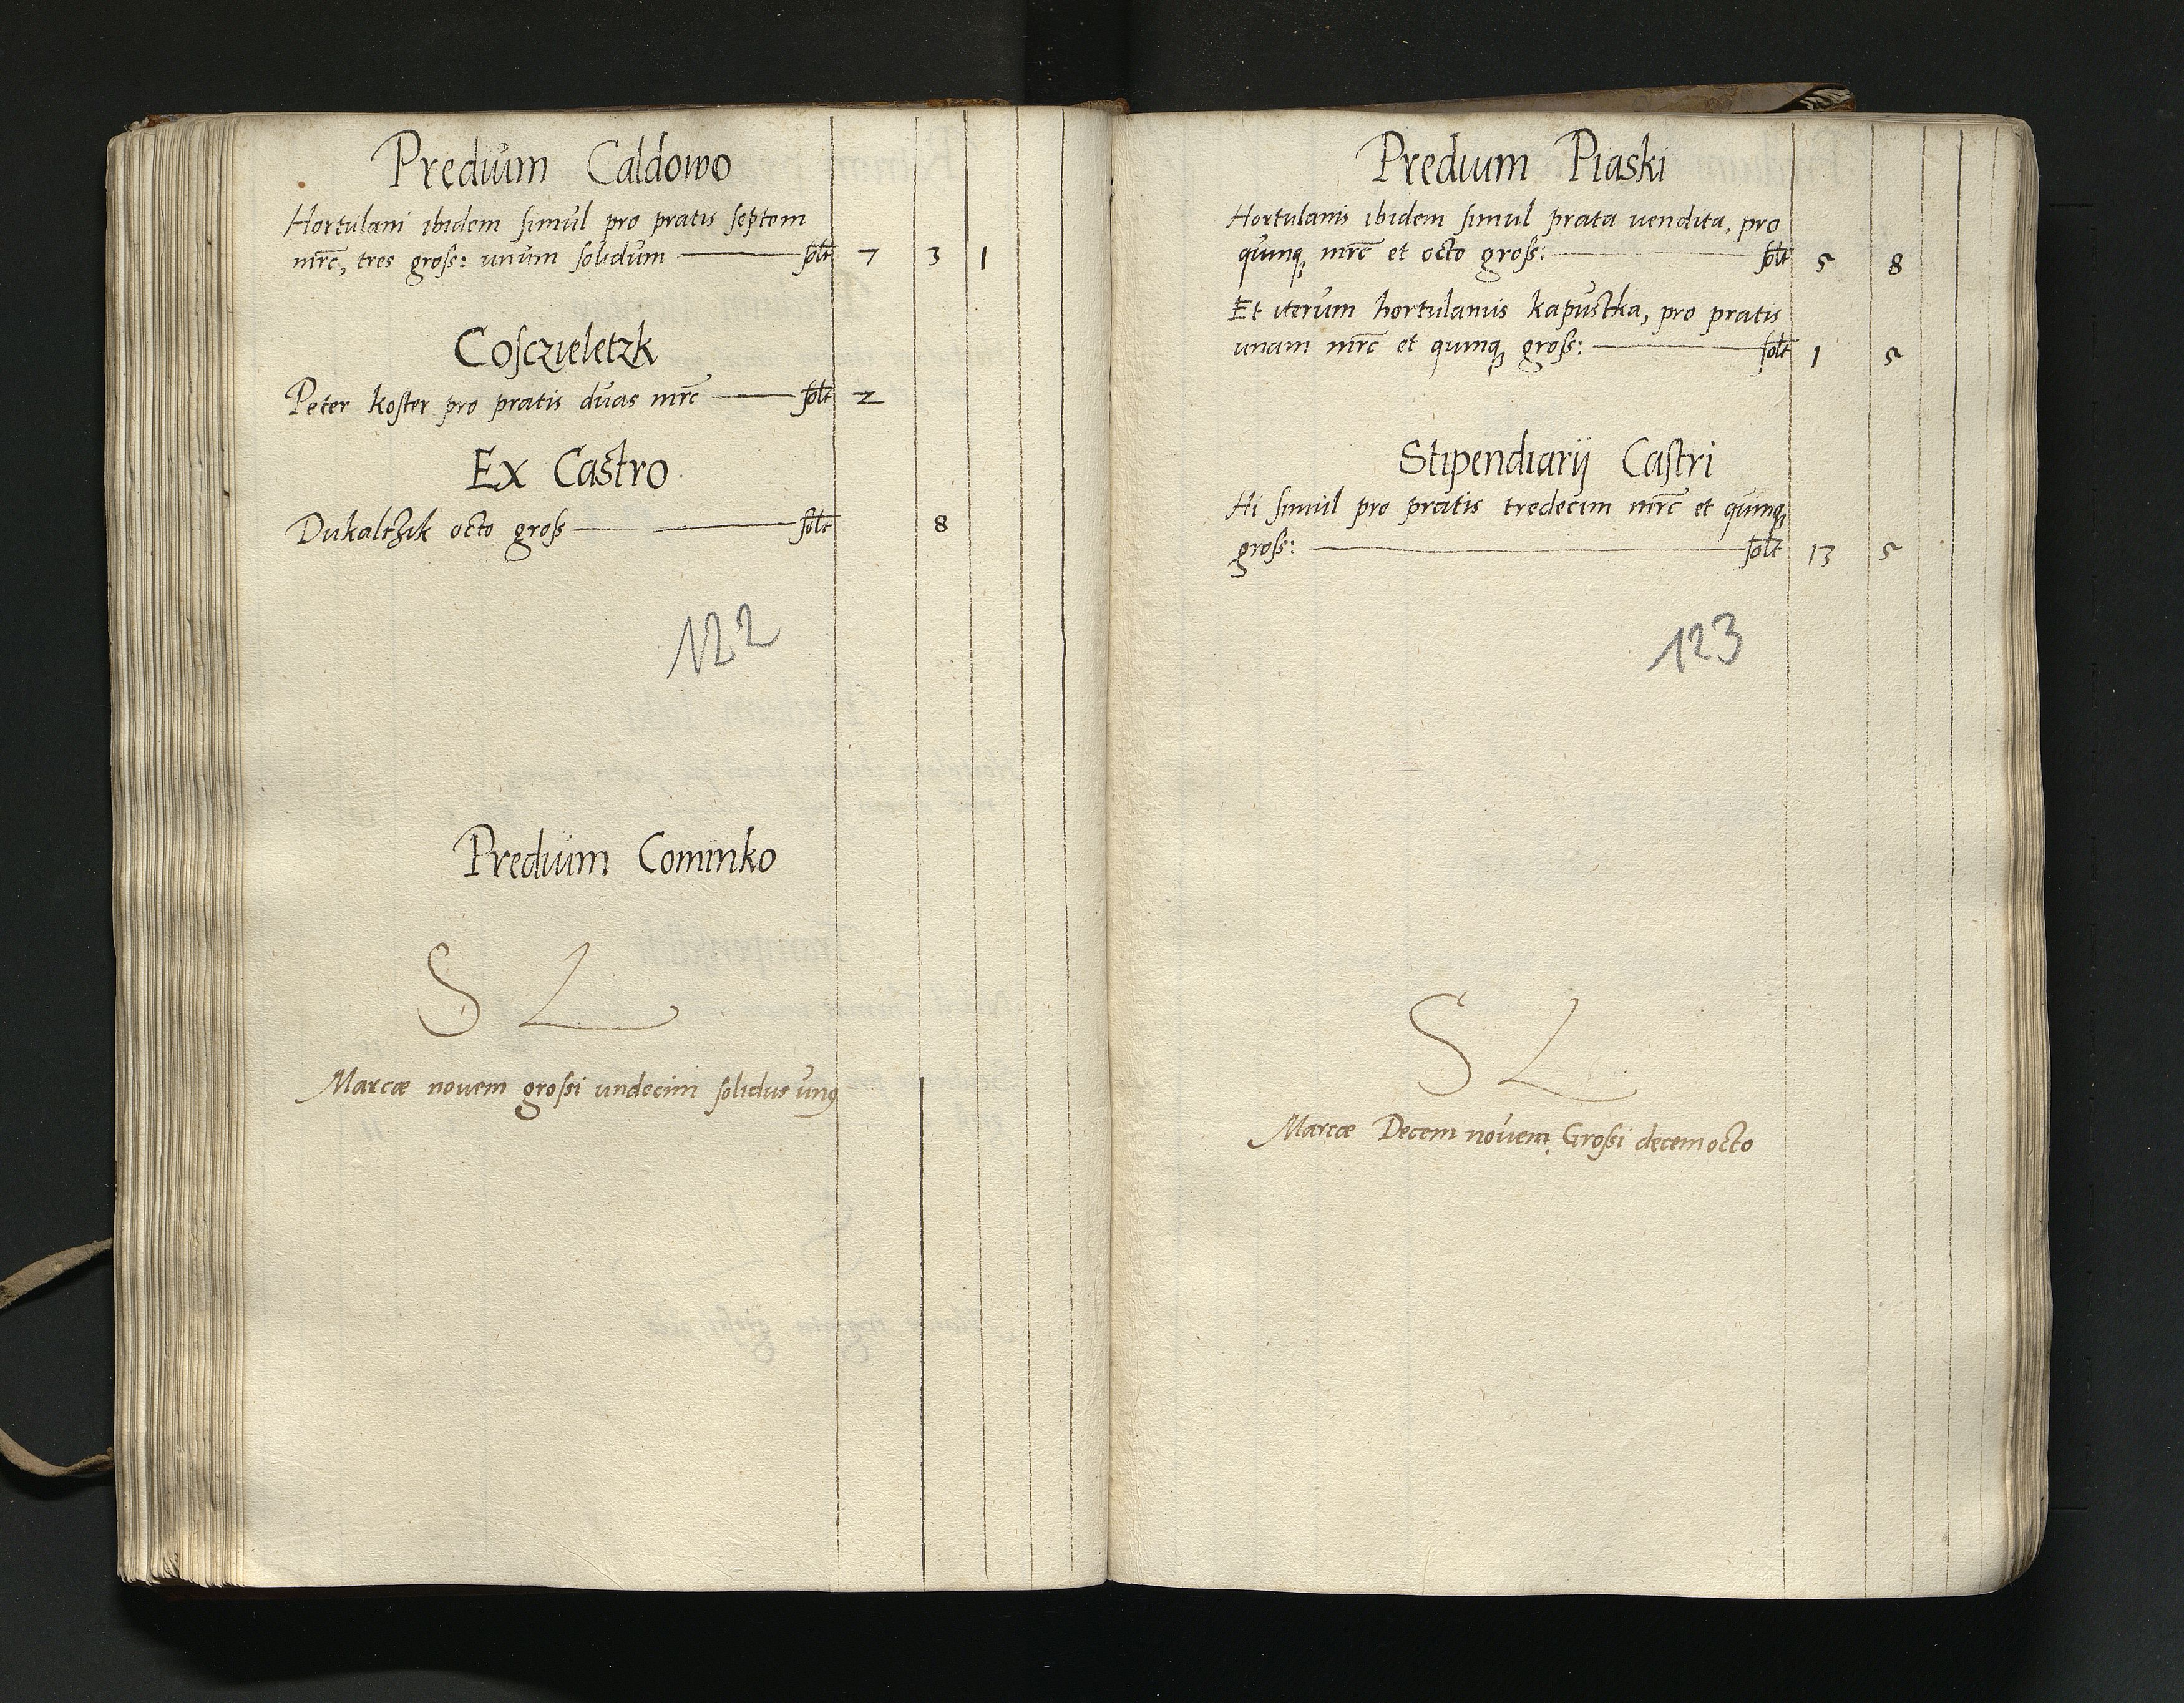 Predium Caldowo
Hortulani ibidem simul pro pratis septem
mrc, tres gross: unum solidum — solt 7 3 1
Cosczieletzk
Peter koster pro pratis duas mrc — solt 2
Ex Castro
Dukaltzik octo gross — solt 8
122
Predium Cominko
S L
Marcæ novem grossi undecim solidus unus
Predium Piaski
Hortulanis ibidem simul prata vendita, pro
quinq mrc et octo gross: — solt 5 8
Et iterum hortulanis kapustka, pro pratis
unam mrc et quinq gross: — solt 1 5
Stipendiarij Castri
Hi simul pro pratis tredecim mrc et quinq
gross: — solt 13 5
123
S L
Marcæ Decem novem Grossi decem octo